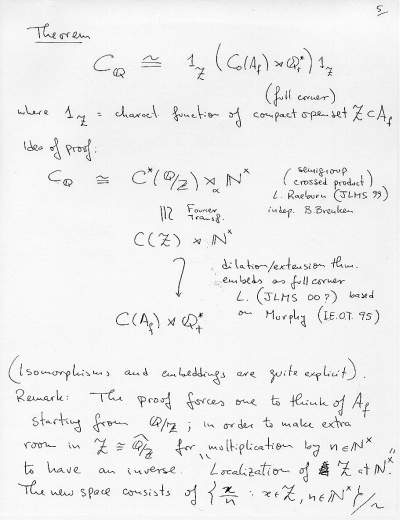 5
Theorem
C_ℚ ≅ 1_Z (C₀(A_f) ⋊ ℚ₊*) 1_Z
(full corner)
where 1_Z = charact function of compact open set Z ⊂ A_f
Idea of proof:
C_ℚ ≅ C*(ℚ/Z) ⋊_α ℕ^×
(semigroup
crossed product)
L. Raeburn (JLMS 99)
indep. B. Brenken
Fourier
Transf.
C(Z) ⋊ ℕ^×
dilation/extension thm.
embeds as full corner
L. (JLMS 00?) based
on Murphy (I.E.O.T. 95)
C(A_f) ⋊ ℚ₊*
(Isomorphisms and embeddings are quite explicit).
Remark: The proof forces one to think of A_f
starting from ℚ/Z; in order to make extra
room in Z ≅ ℚ/Z^ for "multiplication by n∈ℕ^×"
to have an inverse. "Localization of Z at ℕ^×."
The new space consists of {x/n : x∈Z, n∈ℕ^×}/~